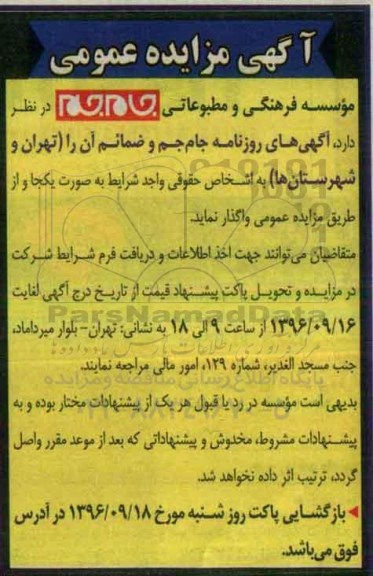 آگهی مزایده عمومی
مؤسسه فرهنگی و مطبوعاتی جام‌جم در نظر
دارد، آگهی‌های روزنامه جام‌جم و ضمائم آن را (تهران و
شهرستان‌ها) به اشخاص حقوقی واجد شرایط به صورت یکجا و از
طریق مزایده عمومی واگذار نماید.
متقاضیان می‌توانند جهت اخذ اطلاعات و دریافت فرم شرایط شرکت
در مزایده و تحویل پاکت پیشنهاد قیمت از تاریخ درج آگهی لغایت
۱۳۹۶/۰۹/۱۶ از ساعت ۹ الی ۱۸ به نشانی: تهران- بلوار میرداماد،
جنب مسجد الغدیر، شماره ۱۲۹، امور مالی مراجعه نمایند.
بدیهی است مؤسسه در رد یا قبول هر یک از پیشنهادات مختار بوده و به
پیشنهادات مشروط، مخدوش و پیشنهاداتی که بعد از موعد مقرر واصل
گردد، ترتیب اثر داده نخواهد شد.
بازگشایی پاکت روز شنبه مورخ ۱۳۹۶/۰۹/۱۸ در آدرس
فوق می‌باشد.
ParsNamadData
پایگاه اطلاع رسانی مناقصه و مزایده